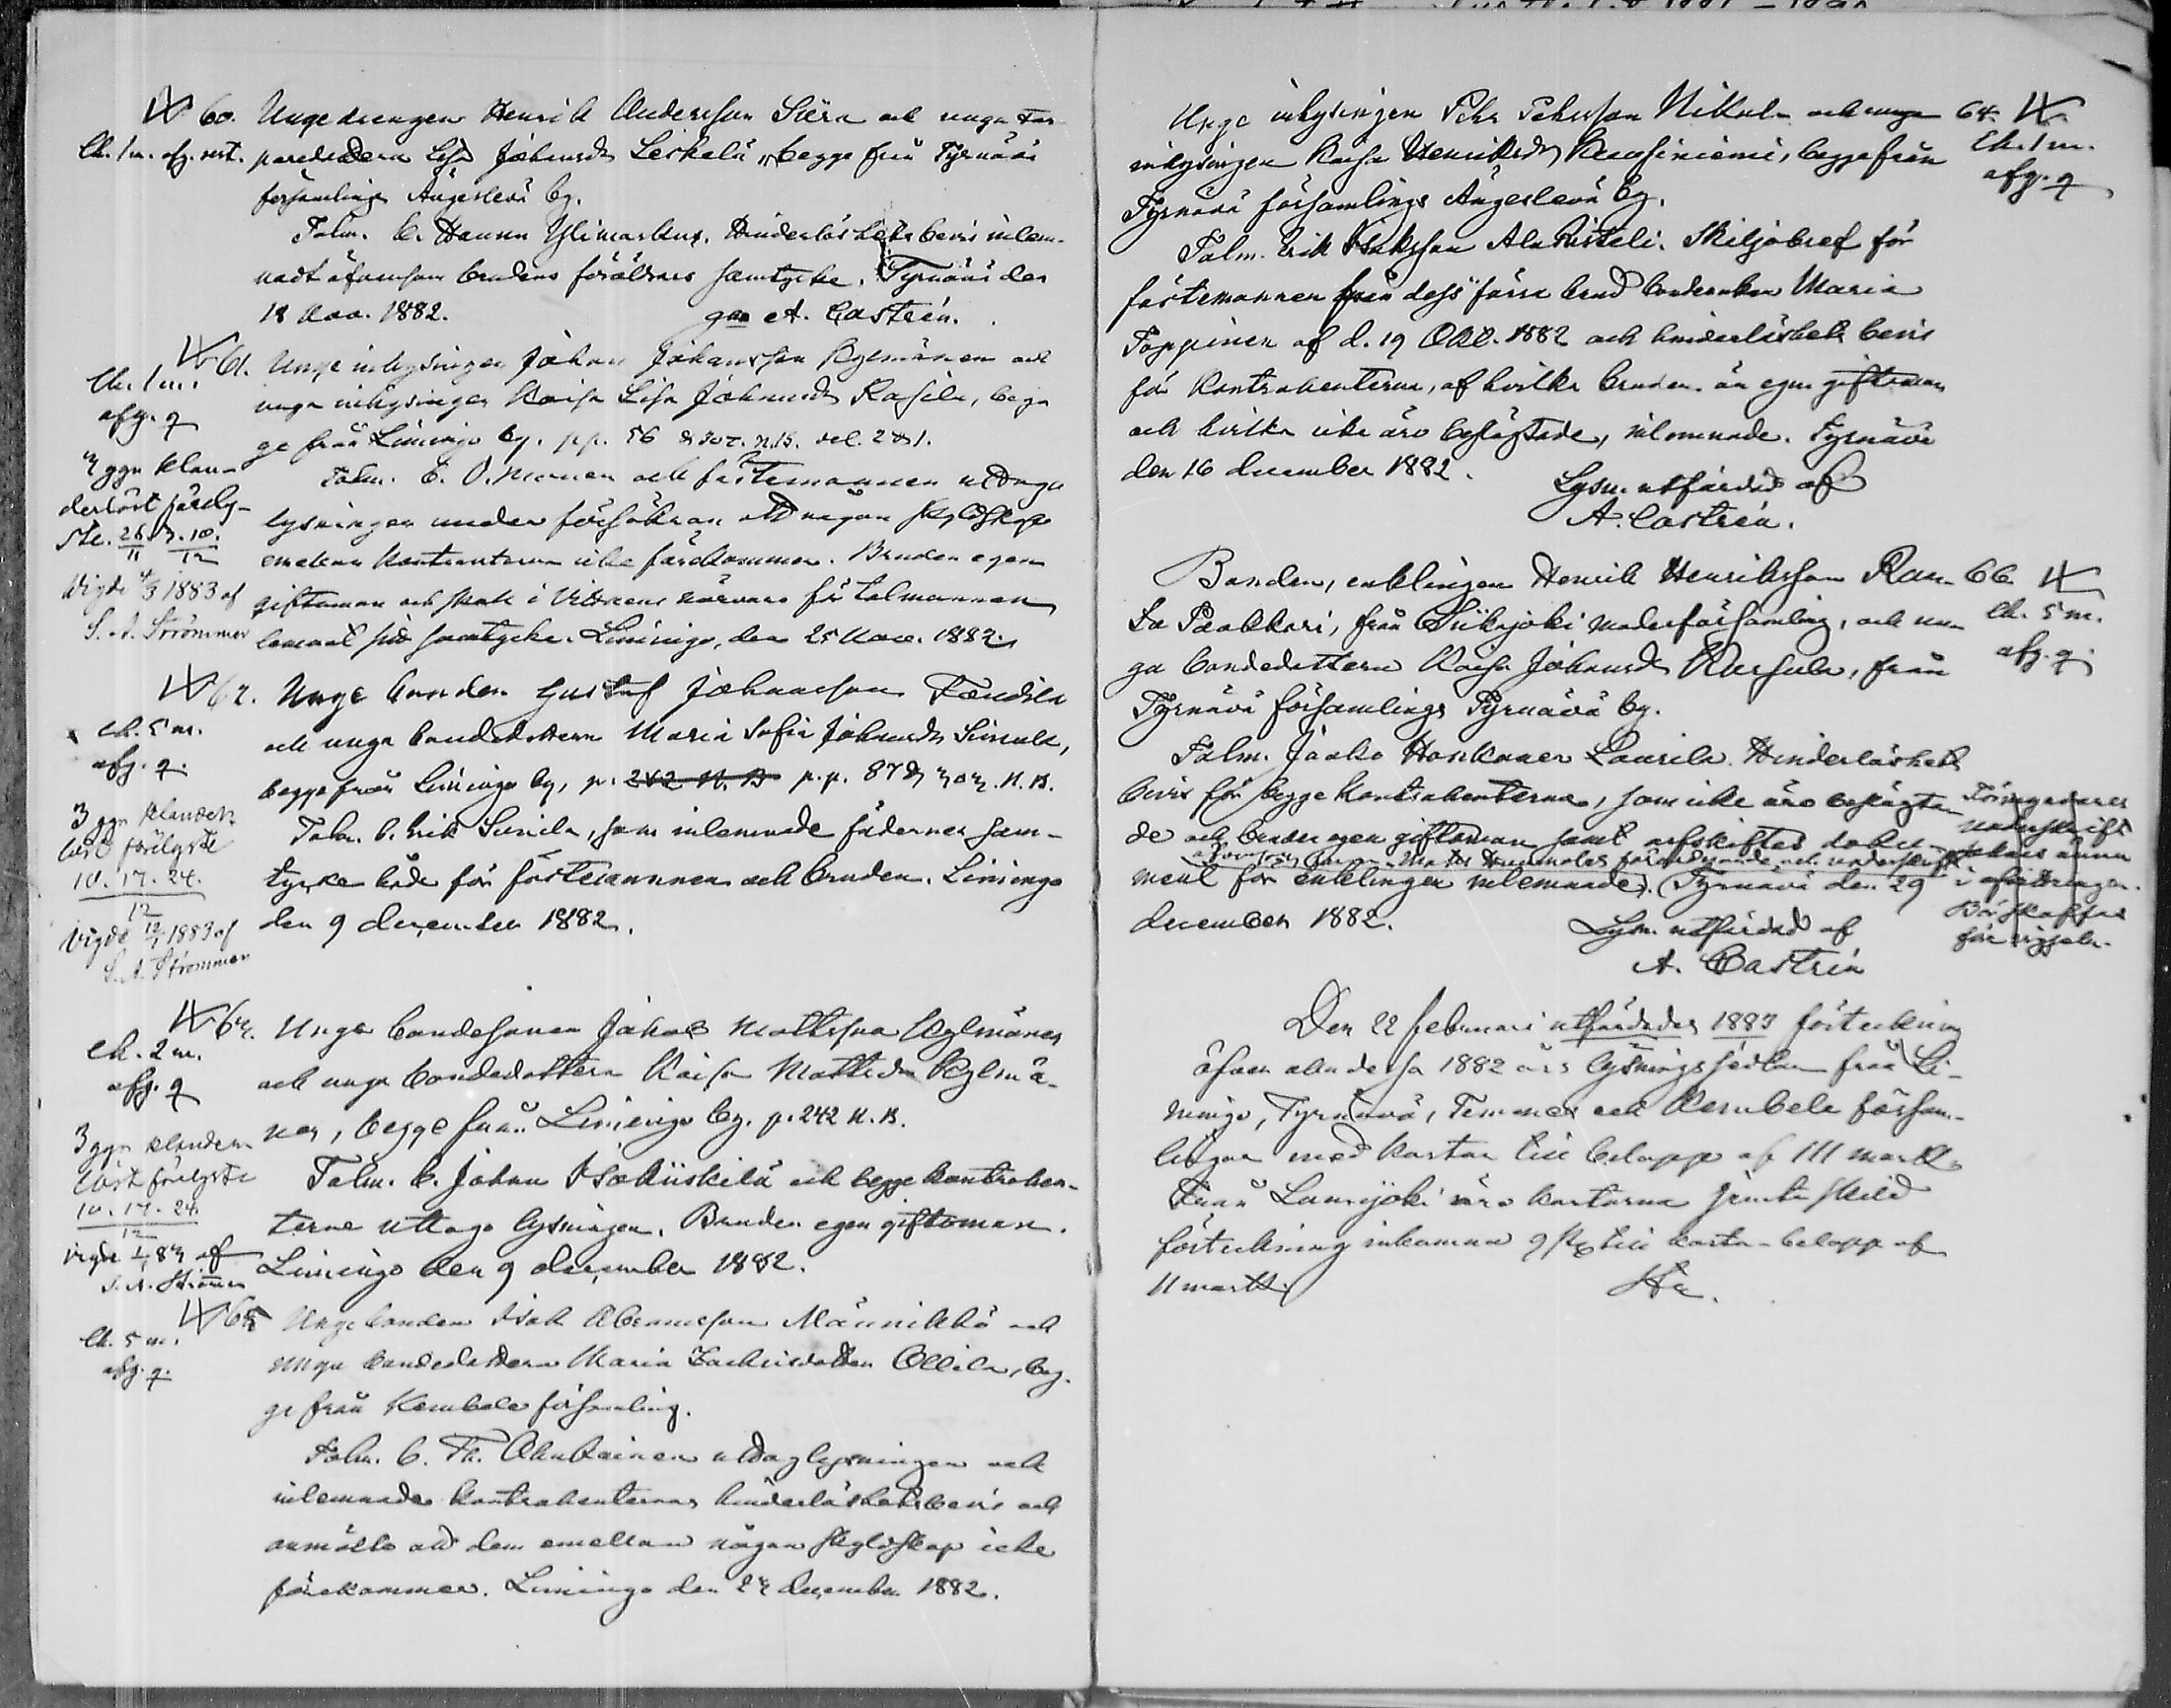 60. Unge drengen Henrik Andersson Siira och unga tor-
Ch. 1 m. afg. rest. paredottern Lisa Johansdr Leskelä, begge från Tyrnävä
församlings Ängeslevä by.
Talm. b. Hannu Ylimarkus. Hinderlöshets bevis inlem-
nadt äfvensom brudens föräldrars samtycke. Tyrnävä den
18 Nov. 1882. gm A. Castrén.
61. Unge inhysingen Johan Johansson Kylmänen och
Ch. 1 m.
afg. q
unga inhysingen Kaisa Lisa Johansdr Rasila, beg-
ge från Limingo by. pp. 56 & 307. N.B. del. 2 & 1.
3 ggr klan-
derlöst förely-
ste. 26/11 3. 10./12
Vigde 4/3 1883 af
S. A. Strömmer
Talm. E. O. och fästemannen uttogo
lysningen under försäkran att någon skyldskap
emellan kontrahenterna icke förekommer. Bruden egen
giftoman och i vittnens närvaro för talmannen
lemnat sitt samtycke. Limingo, den 25 Nov. 1882.
62. Unge bonden Gustaf Johansson
Ch. 5 m.
afg. q.
och unga bondedottern Maria Sofia Johansdr
begge från Limingo by, p. 242 N. B. p.p. 87 & 303. N.B.
3 ggr klander-
löst förelyste
10. 17. 24.
12
Vigde 12/1 1883 af
S. A. Strömmer
Talm. b. Erik Sunila, som inlemnade fädernes sam-
tycke både för fästemannen och bruden. Limingo
den 9 december 1882.
63. Unge bondesonen Jakob Mattsson Kylmänen
Ch. 2 m.
afg. q
och unga bondedottern Kaisa Mattsdr Kylmä-
nen, begge från Limingo by. p. 242 N. B.
3 ggr klander-
löst förelyste
10. 17. 24.
12
Vigde 83 af
S. A. Strömmer
Talm. b. Johan och begge kontrahen-
terne uttogo lysningen. Bruden egen giftoman.
Limingo den 9 december 1882.
65 Unge bonden Isak Abramsson Männikkö och
Ch. 5 m.
afg. q.
unga bondedottern Maria Zachrisdotter Ollila, beg-
ge från Kembele församling.
Talm. b. Th. uttog lysningen och
inlemnade kontrahenternas hinderlöshetsbevis och
anmälte att dem emellan någon skyldskap icke
förekommer. Limingo den 23 december 1882.
Unge inhysingen Pehr Pehrsson Nikula och unga 64.
inhysingen Kaisa Henriksdr Kuusiniemi, begge från Ch. 1 m.
Tyrnävä församlings Ängeslevä by. afg. q
Talm. Erik Isaksson Ala Risteli. Skiljobref för
fästemannen från dess förra brud Maria
Toppinen af d. 19 Okt. 1882 och hinderlöshets bevis
för kontrahenterna, af hvilka bruden är egen giftoman
och hvilka icke äro beslägtade, inlemnade. Tyrnävä
den 16 december 1882. Lysn. utfärdad af
A. Castrén.
Bonden, enklingen Henrik Henriksson Ran- 66
ta Paakkari, från Siikajoki moderförsamling, och un- Ch. 5 m.
ga bondedottern Kaisa Johansdr Karsula, från afg. q
Tyrnävä församlings Tyrnävä by.
Talm. Jaako Honkanen Laurila. Hinderlöshets
bevis för begge kontrahenterna, som icke äro beslägta-
de och bruden egen giftoman samt arfskiftes doku-
äfvensom Matts förordnande och underskrift
ment för enklingen inlemnade. Tyrnävä den 29
december 1882. Lysn. utfärdad af
A. Castrén
underskrift
saknas ännu
i afvittringen.
Bör skaffas
före vigseln.
Den 22 februari utfärdades 1883 förteckning
öfver alla dessa 1882 års lysningssedlar från Li-
mingo, Tyrnävä, Temmes och Kembele försam-
lingar med kartor till belopp af 111 mark.
Från Lumijoki äro kartorna jemte skild
förteckning inkomna 9 st till karta-belopp af
11 mark.